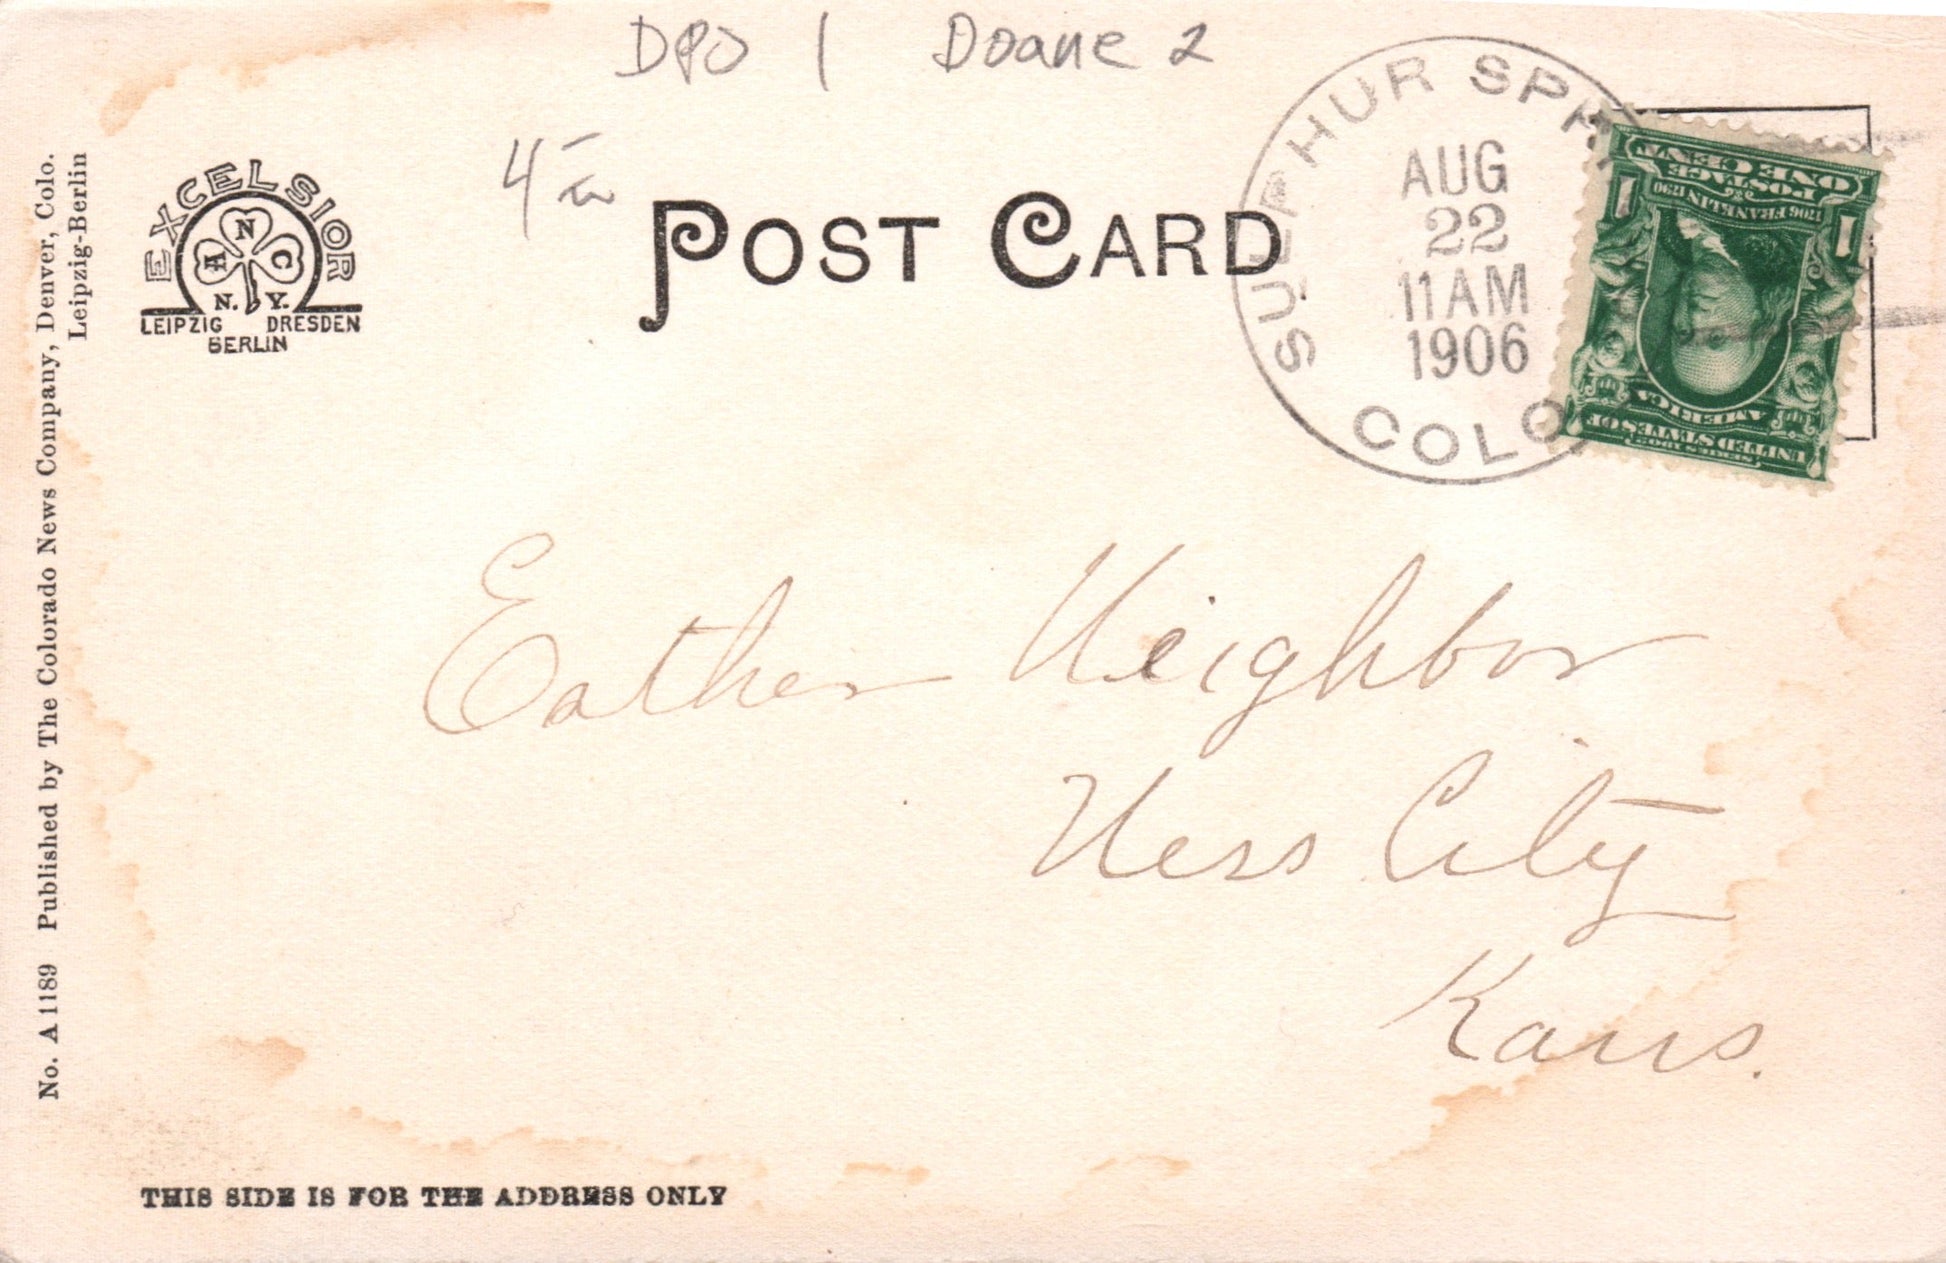 DPO 1 Doane 2
4
EXCELSIOR
A N C
N. Y.
LEIPZIG DRESDEN
BERLIN
POST CARD
SULPHUR SPR
AUG
22
11 AM
1906
COLO
ONE CENT
POSTAGE
1706 FRANKLIN 1790
1 1
AMERICA
UNITED STATES OF
SERIES 1902
Esther Neighbor
Ness City
Kans.
No. A 1189 Published by The Colorado News Company, Denver, Colo.
Leipzig-Berlin
THIS SIDE IS FOR THE ADDRESS ONLY